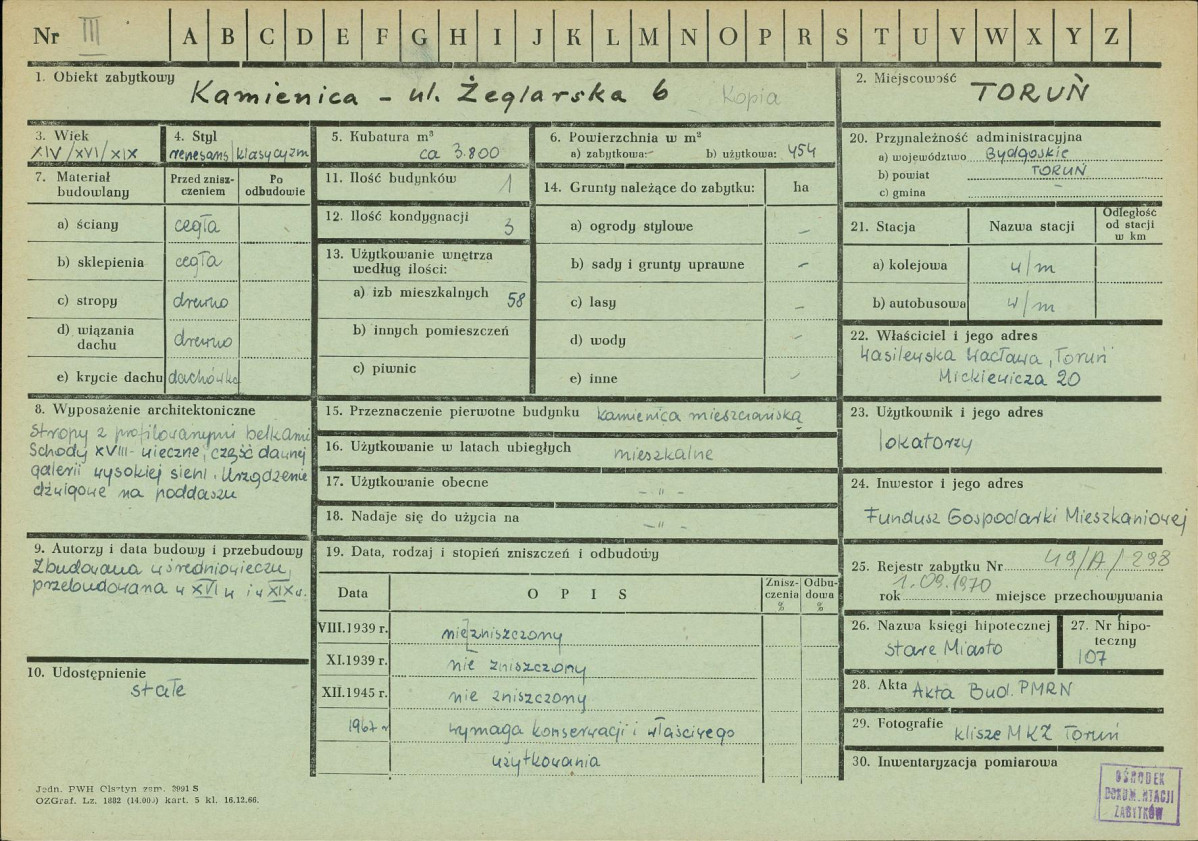 Nr III A B C D E F G H I J K L M N O P R S T U V W X Y Z
1. Obiekt zabytkowy
Kamienica - ul. Żeglarska 6 Kopia
2. Miejscowość
TORUŃ
3. Wiek
XIV/XVI/XIX
4. Styl
renesans/klasycyzm
5. Kubatura m³
ca 3.800
6. Powierzchnia w m²
a) zabytkowa: - b) użytkowa: 454
7. Materiał budowlany
Przed znisz-
czeniem
Po
odbudowie
a) ściany cegła
b) sklepienia cegła
c) stropy drewno
d) wiązania
dachu drewno
e) krycie dachu dachówka
8. Wyposażenie architektoniczne
Stropy z profilowanymi belkami
Schody XVIII-wieczne, część dawnej
galerii wysokiej sieni. Urządzenie
dźwigowe na poddaszu
9. Autorzy i data budowy i przebudowy
Zbudowana w średniowieczu,
przebudowana w XVI w i w XIX w.
10. Udostępnienie
stałe
11. Ilość budynków 1
12. Ilość kondygnacji 3
13. Użytkowanie wnętrza
według ilości:
a) izb mieszkalnych 58
b) innych pomieszczeń
c) piwnic
14. Grunty należące do zabytku: ha
a) ogrody stylowe -
b) sady i grunty uprawne -
c) lasy -
d) wody -
e) inne -
15. Przeznaczenie pierwotne budynku kamienica mieszczańska
16. Użytkowanie w latach ubiegłych mieszkalne
17. Użytkowanie obecne - " -
18. Nadaje się do użycia na - " -
19. Data, rodzaj i stopień zniszczeń i odbudowy
Data OPIS Znisz-
czenia
% Odbu-
dowa
%
VIII.1939 r. niezniszczony
XI.1939 r. nie zniszczony
XII.1945 r. nie zniszczony
1967 r wymaga konserwacji i właściwego
użytkowania
20. Przynależność administracyjna
a) województwo Bydgoskie
b) powiat TORUŃ
c) gmina -
21. Stacja Nazwa stacji Odległość
od stacji
w km
a) kolejowa w/m
b) autobusowa w/m
22. Właściciel i jego adres
Wasilewska Wacława, Toruń
Mickiewicza 20
23. Użytkownik i jego adres
lokatorzy
24. Inwestor i jego adres
Fundusz Gospodarki Mieszkaniowej
25. Rejestr zabytku Nr 49/A/298
rok 1.09.1970 miejsce przechowywania
26. Nazwa księgi hipotecznej
Stare Miasto
27. Nr hipo-
teczny
107
28. Akta Akta Bud. PMRN
29. Fotografie klisze MKZ Toruń
30. Inwentaryzacja pomiarowa
Jedn. PWH Olsztyn zam. 3991 S
OZGraf. Lz. 1882 (14.000) kart. 5 kl. 16.12.66.
OŚRODEK
DOKUMENTACJI
ZABYTKÓW